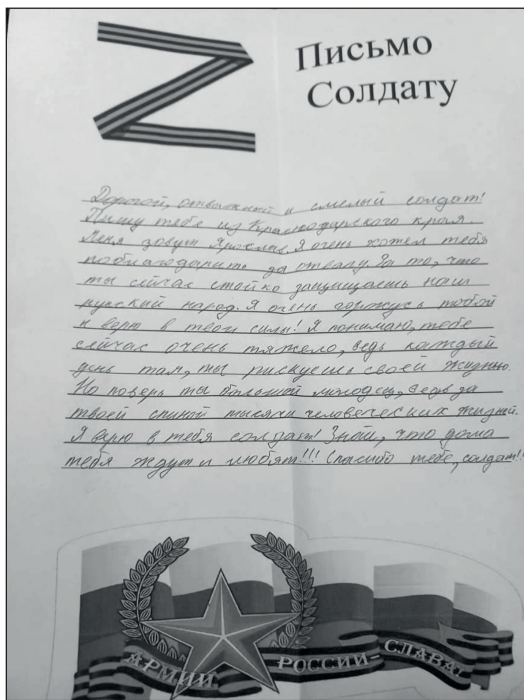 Письмо
Солдату
Дорогой, отважный и смелый солдат!
Пишу тебе из Краснодарского края
Меня зовут Ярослав. Я очень хотел тебя
поблагодарить за отвагу. За то, что
ты сейчас стойко защищаешь наш
русский народ. Я очень горжусь тобой
и верю в твои силы! Я понимаю, тебе
сейчас очень тяжело, ведь каждый
день там, ты рискуешь своей жизнью.
Но поверь ты большой молодец, ведь за
твоей спиной тысячи человеческих жизней.
Я верю в тебя солдат! Знай, что дома
тебя ждут и любят!!! Спасибо тебе, солдат!!
АРМИИ РОССИИ - СЛАВА!